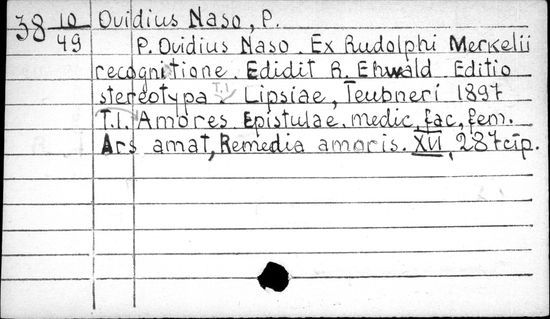 38 10/49 Ovidius Naso, P.
P. Ovidius Naso. Ex Rudolphi Merkelii
recognitione. Edidit R. Ehwald. Editio
stereotypa T.I. Lipsiae, Teubneri 1897
T.I. Amores Epistulae. medic. fac. fem.
Ars amat, Remedia amoris. XVI, 287 стр.